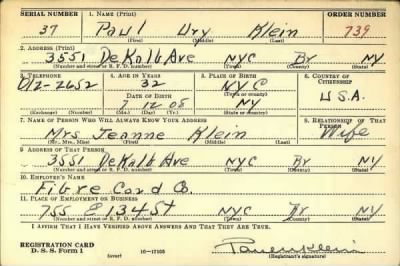 SERIAL NUMBER 1. NAME (Print) ORDER NUMBER
37 Paul Ury Klein 739
(First) (Middle) (Last)
2. ADDRESS (Print)
3551 DeKalb Ave NYC Br NY
(Number and street or R. F. D. number) (Town) (County) (State)
3. TELEPHONE 4. AGE IN YEARS 5. PLACE OF BIRTH 6. COUNTRY OF CITIZENSHIP
Ol2-2652 32 NYC
DATE OF BIRTH (Town or county) USA
7 12 08 NY
(Mo.) (Day) (Yr.) (State or country)
7. NAME OF PERSON WHO WILL ALWAYS KNOW YOUR ADDRESS 8. RELATIONSHIP OF THAT PERSON
Mrs Jeanne Klein Wife
(Mr., Mrs., Miss) (First) (Middle) (Last)
9. ADDRESS OF THAT PERSON
3551 DeKalb Ave NYC Br NY
(Number and street or R. F. D. number) (Town) (County) (State)
10. EMPLOYER'S NAME
Fibre Cord Co
11. PLACE OF EMPLOYMENT OR BUSINESS
755 E 134 St NYC Br NY
(Number and street or R. F. D. number) (Town) (County) (State)
I AFFIRM THAT I HAVE VERIFIED ABOVE ANSWERS AND THAT THEY ARE TRUE.
REGISTRATION CARD
D. S. S. Form 1 (over) 16-17105 (Registrant's signature)